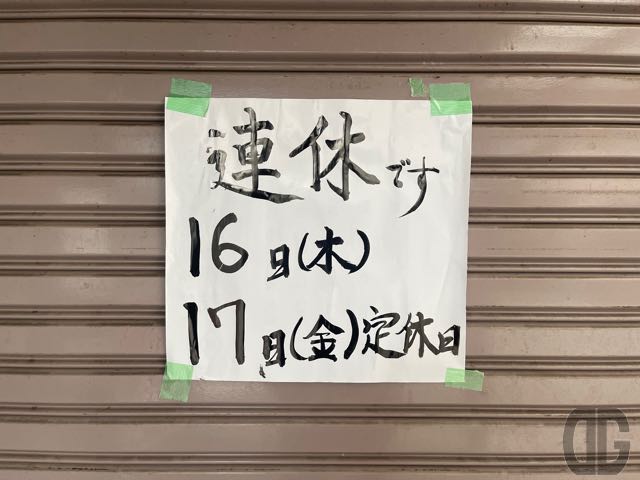 連休です
16日(木)
17日(金)定休日
DG